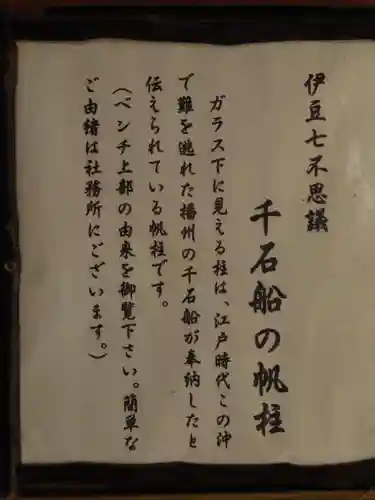 伊豆七不思議
千石船の帆柱
ガラス下に見える柱は、江戸時代この沖
で難を逃れた播州の千石船が奉納したと
伝えられている帆柱です。
(ベンチ上部の由来を御覧下さい。簡単な
ご由緒は社務所にございます。)